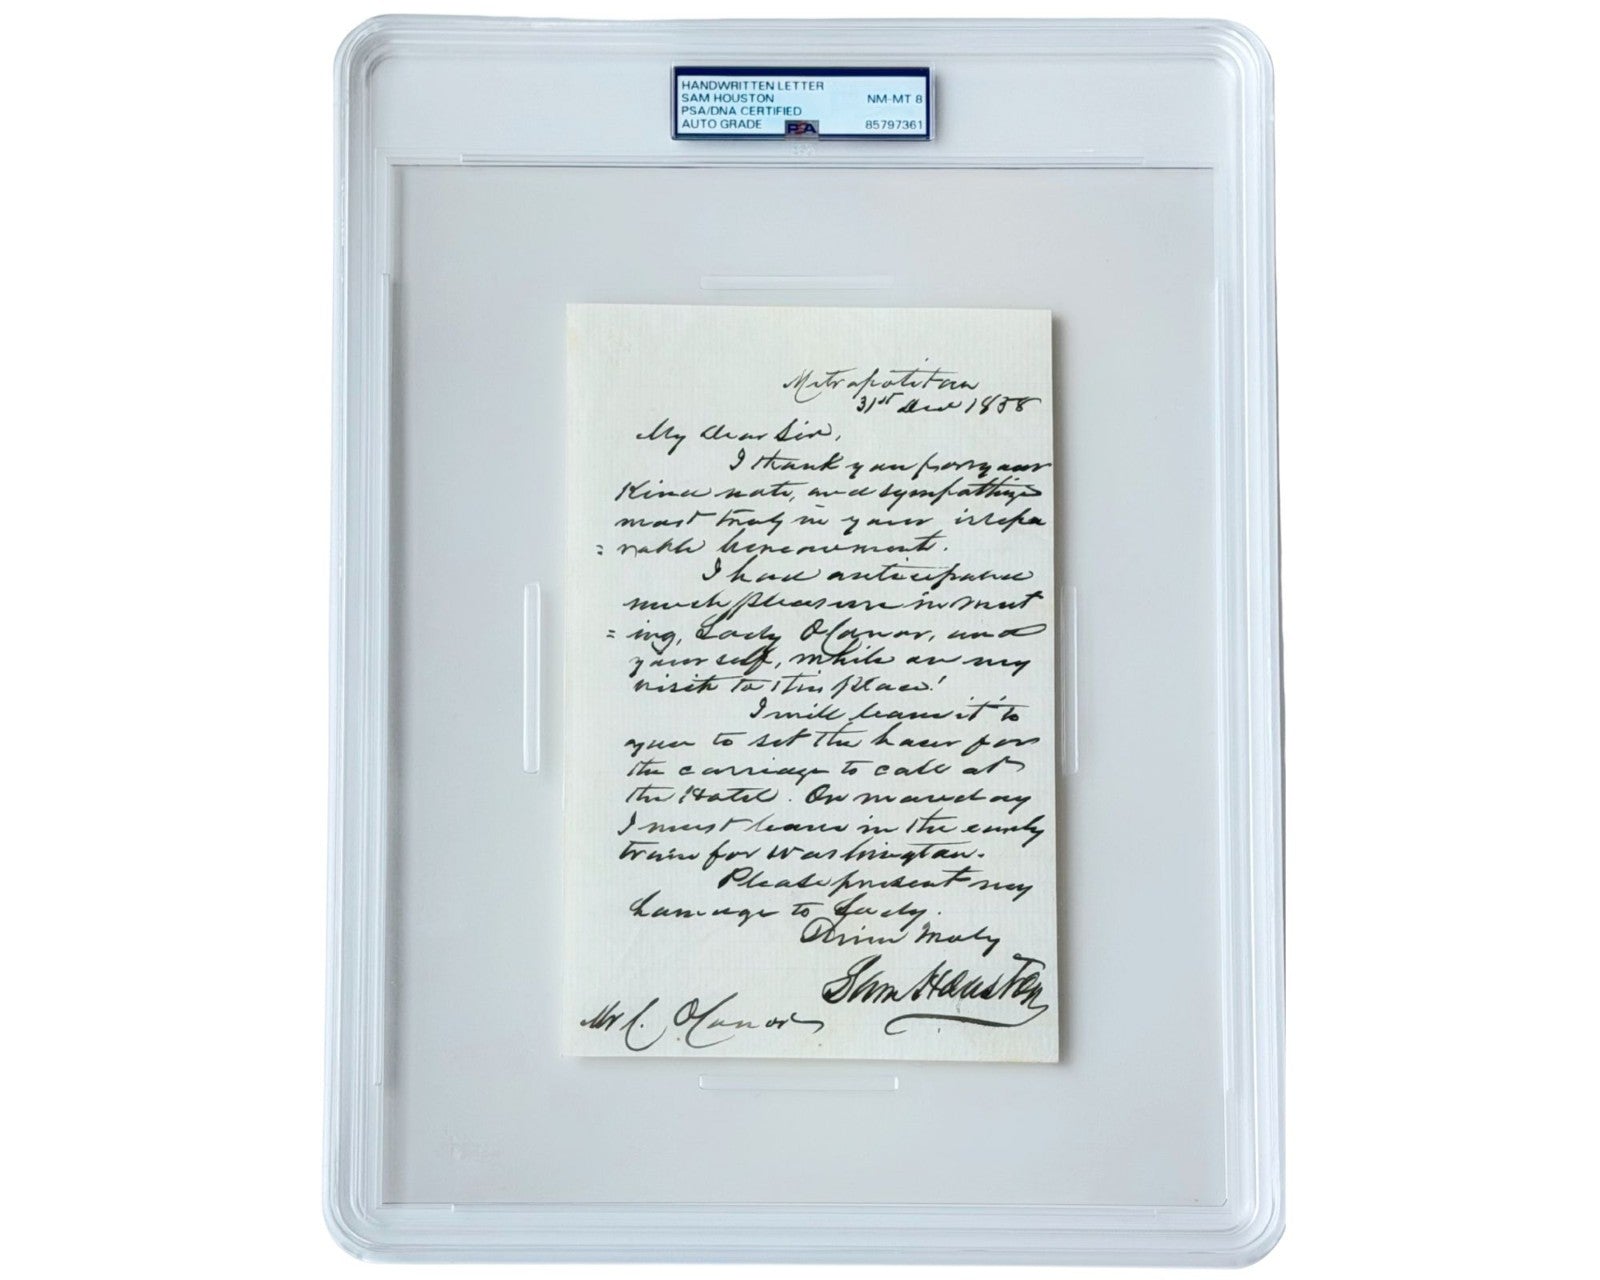 HANDWRITTEN LETTER
SAM HOUSTON NM-MT 8
PSA/DNA CERTIFIED
AUTO GRADE PSA 85797361
Metropolitan
31st Decr 1858
My Dear Sir,
I thank you for your
kind note, and sympathize
most truly in your irrepa
= rable bereavement.
I had anticipated
much pleasure in meet
= ing, Lady O'Conor, and
yourself, while on my
visit to this place!
I will leave it to
you to set the hour for
the carriage to call at
the Hotel. On monday
I must leave in the early
train for Washington.
Please present my
homage to Lady.
Thine Truly
Sam Houston
Mr C. O'Conor